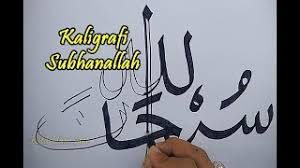 Kaligrafi
Subhanallah
سبحان الله